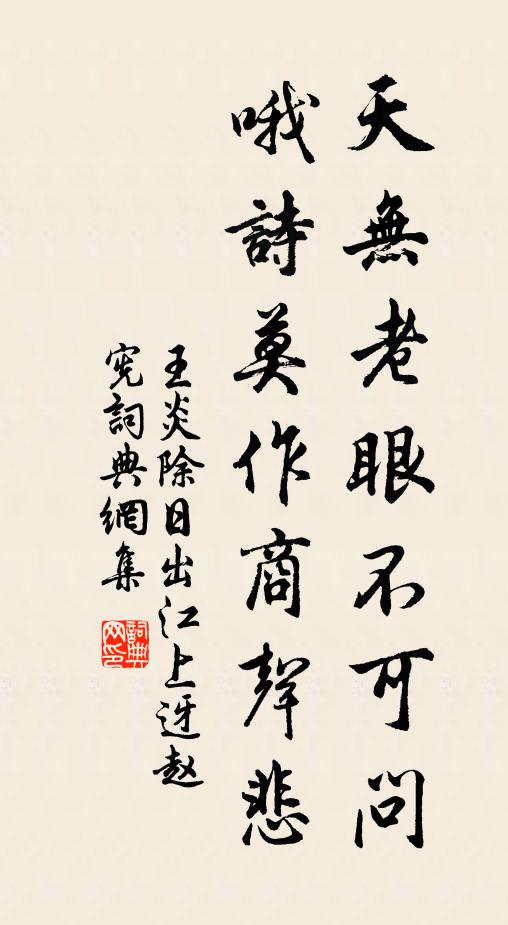 天無老眼不可問
哦詩莫作商聲悲
王炎除日出江上迓赵
宪詞典網集
詞典网印